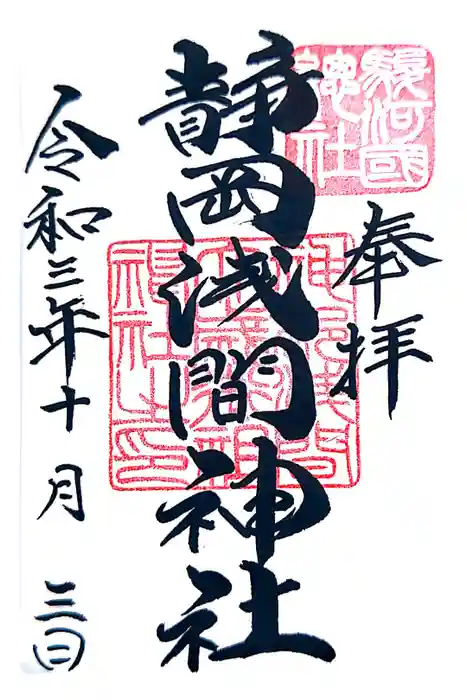 駿河國
總社
奉拝
静岡浅間神社
令和三年十月三日